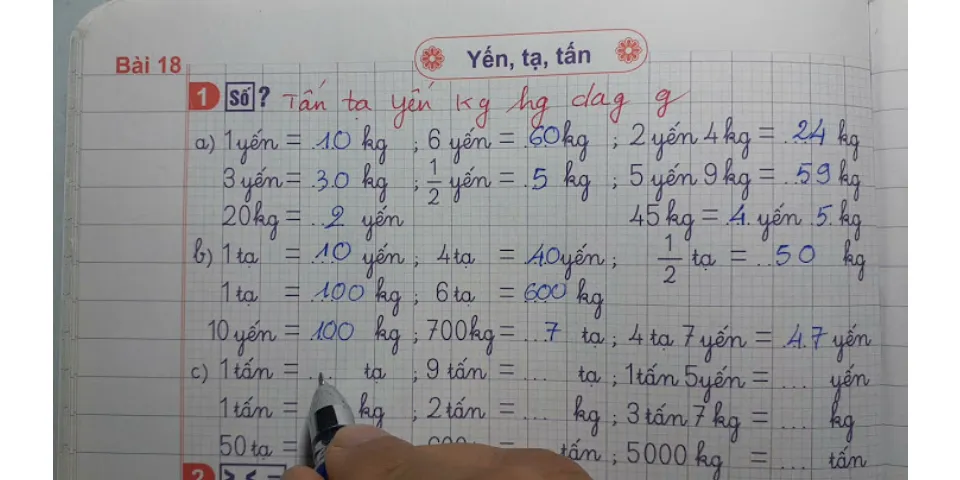 Bài 18
Yến, tạ, tấn
1 Số ? Tấn tạ yến kg hg dag g
a) 1 yến = 10 kg ; 6 yến = 60 kg ; 2 yến 4 kg = 24 kg
3 yến = 30 kg ; 1/2 yến = 5 kg ; 5 yến 9 kg = 59 kg
20 kg = 2 yến 45 kg = 4 yến 5 kg
b) 1 tạ = 10 yến ; 4 tạ = 40 yến ; 1/2 tạ = 50 kg
1 tạ = 100 kg ; 6 tạ = 600 kg
10 yến = 100 kg ; 700 kg = 7 tạ ; 4 tạ 7 yến = 47 yến
c) 1 tấn = ... tạ ; 9 tấn = ... tạ ; 1 tấn 5 yến = ... yến
1 tấn = kg ; 2 tấn = ... kg ; 3 tấn 7 kg = ... kg
50 tạ = = ... tấn ; 5000 kg = ... tấn
2 > < =